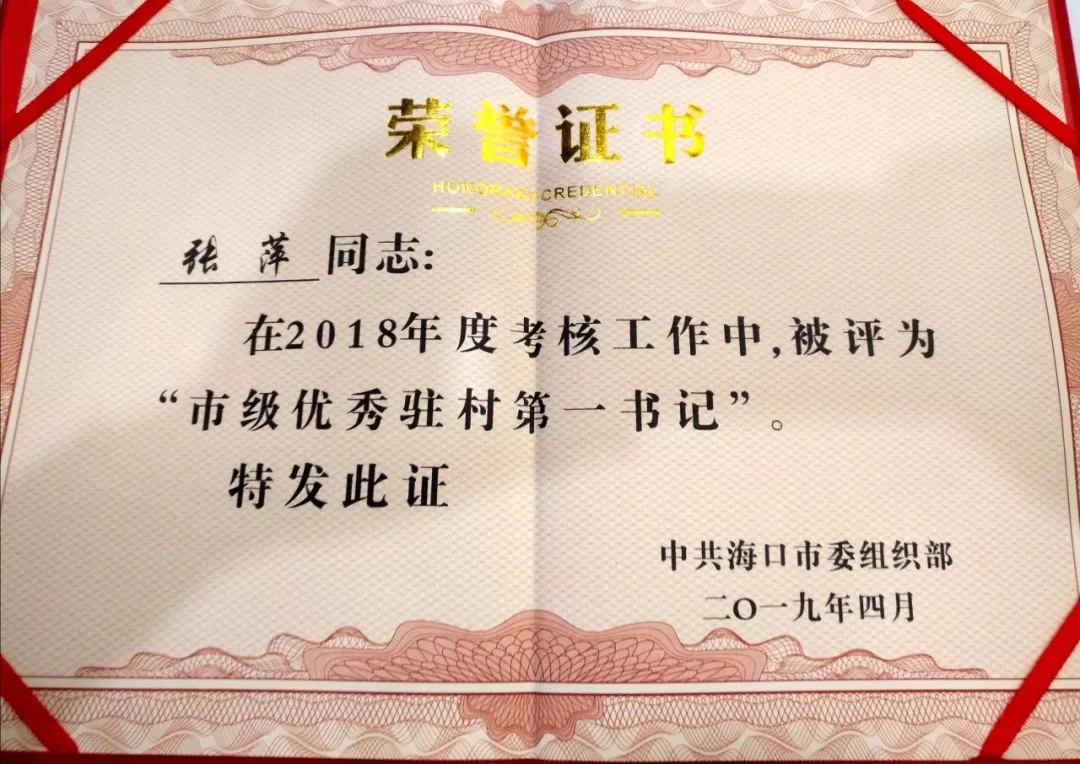 荣誉证书
HONORARY CREDENTIAL
张萍同志:
在2018年度考核工作中,被评为
“市级优秀驻村第一书记”。
特发此证
中共海口市委组织部
二〇一九年四月